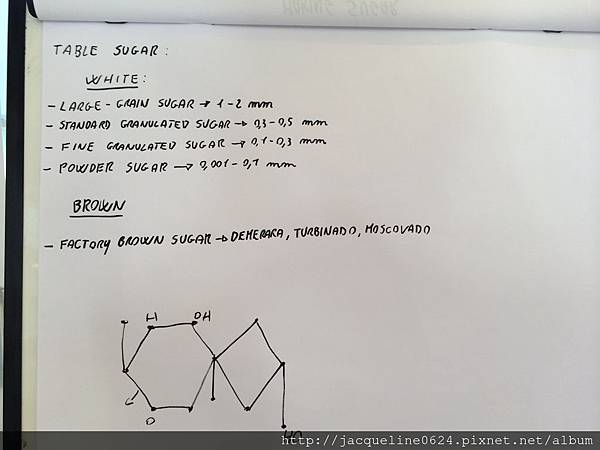 TABLE SUGAR:
WHITE:
- LARGE-GRAIN SUGAR → 1-2 mm
- STANDARD GRANULATED SUGAR → 0,3-0,5 mm
- FINE GRANULATED SUGAR → 0,1-0,3 mm
- POWDER SUGAR → 0,001-0,1 mm
BROWN
- FACTORY BROWN SUGAR → DEMERARA, TURBINADO, MOSCOVADO
H OH
O
HO
http://jacqueline0624.pixnet.net/album